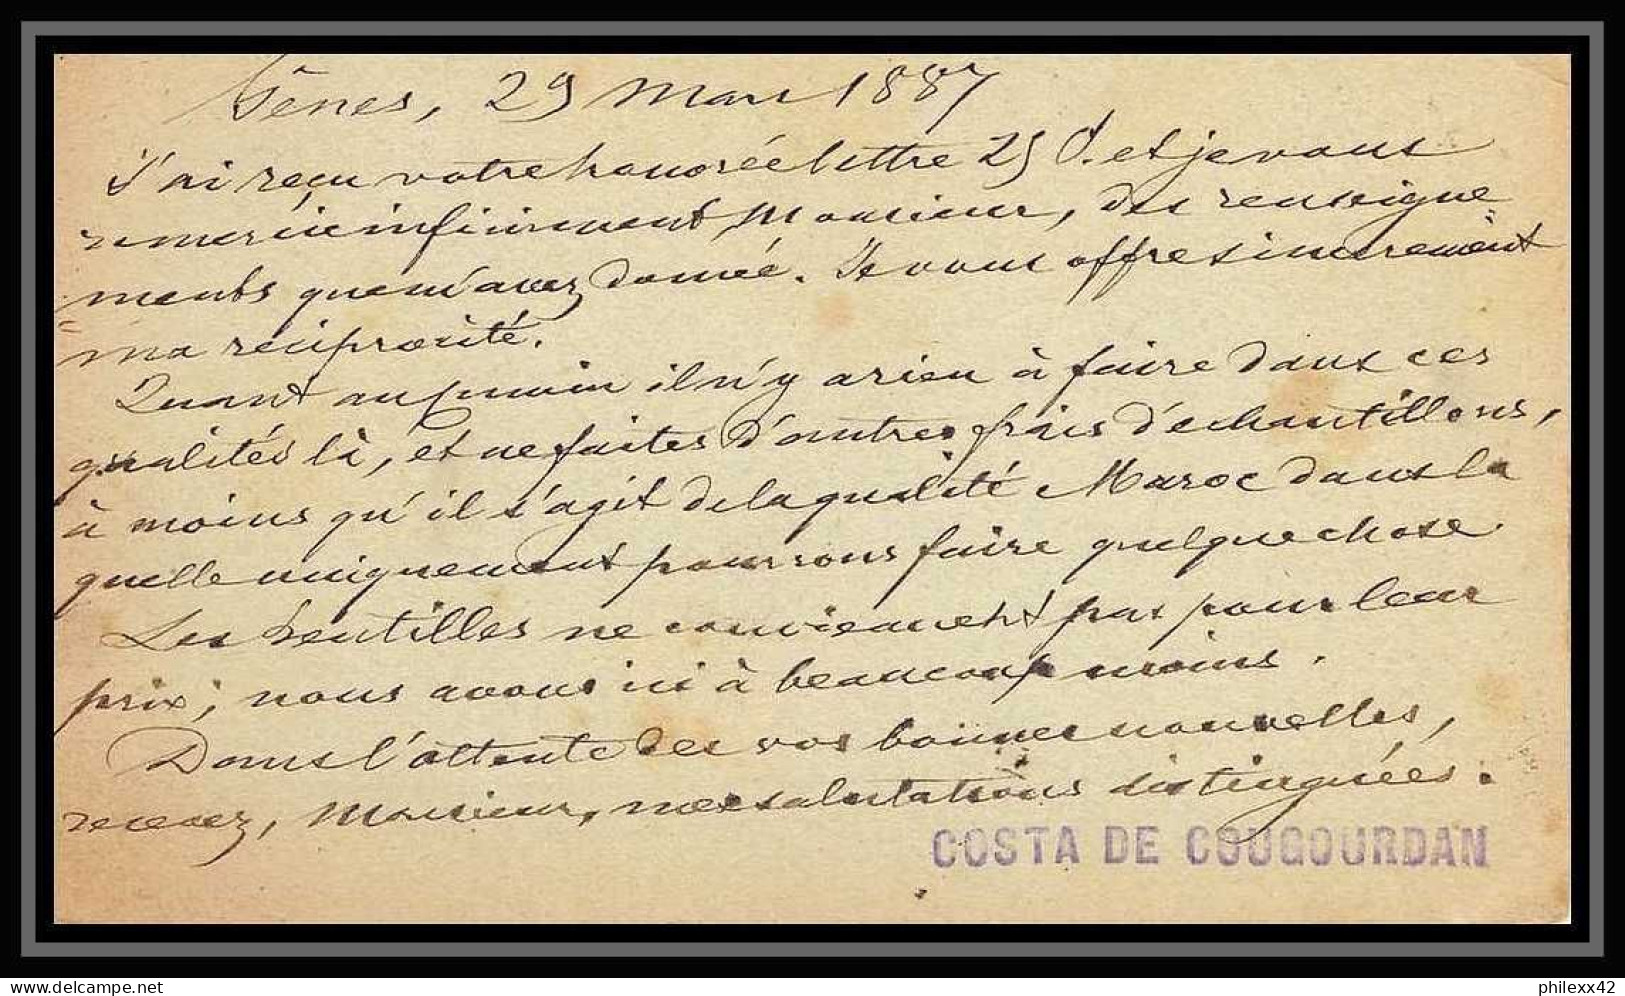 Gênes, 29 Mars 1887
J'ai reçu votre honorée lettre 25 Ct. et je vous
remercie infiniment, Monsieur, des renseigne=
ments que m'avez donné. Je vous offre sincerement
=ma reciprocité.
Quant au cumin il n'y a rien à faire dans ces
qualités là, et ne faites d'autres frais d'echantillons,
à moins qu'il s'agit de la qualité Maroc dans la
quelle uniquement pourrons faire quelque chose.
Les lentilles ne conviennent pas pour leur
prix; nous avons ici à beaucoup moins.
Dans l'attente des vos bonnes nouvelles,
recevez, Monsieur, nos salutations distinguées.
COSTA DE COUGOURDAN
delcampe.net
philexx42